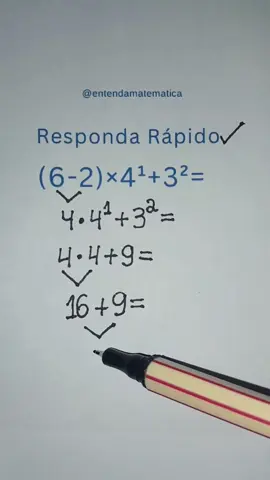 @entendamatematica
Responda Rápido✓
(6-2)×4¹+3²=
4·4¹+3²=
4·4+9=
16+9=